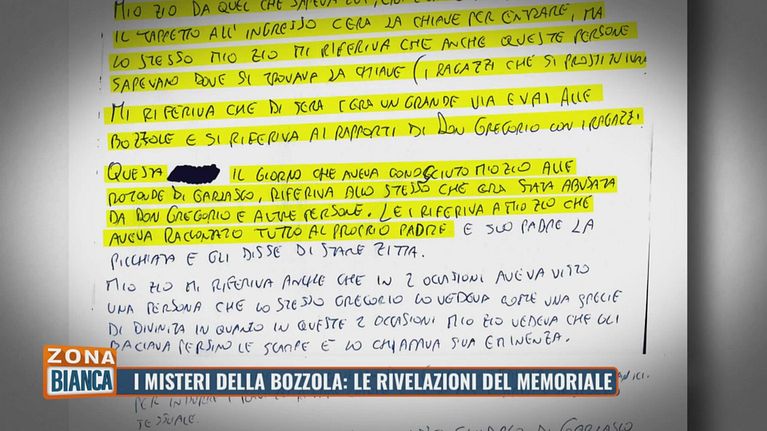 MIO ZIO DA QUEL CHE SAPEVA LUI,
IL TAPPETO ALL'INGRESSO C'ERA LA CHIAVE PER ENTRARE, MA
LO STESSO MIO ZIO MI RIFERIVA CHE ANCHE QUESTE PERSONE
SAPEVANO DOVE SI TROVAVA LA CHIAVE (I RAGAZZI CHE SI PROSTITUIVA
MI RIFERIVA CHE DI SERA C'ERA UN GRANDE VIA E VAI ALLE
BOZZOLE E SI RIFERIVA AI RAPPORTI DI DON GREGORIO CON I RAGAZZI.
QUESTA IL GIORNO CHE AVEVA CONOSCIUTO MIO ZIO ALLE
ROTONDE DI GARLASCO, RIFERIVA ALLO STESSO CHE ERA STATA ABUSATA
DA DON GREGORIO E ALTRE PERSONE. LEI RIFERIVA A MIO ZIO CHE
AVEVA RACCONTATO TUTTO AL PROPRIO PADRE E SUO PADRE LA
PICCHIATA E GLI DISSE DI STARE ZITTA.
MIO ZIO MI RIFERIVA ANCHE CHE IN 2 OCCASIONI AVEVA VISTO
UNA PERSONA CHE LO STESSO GREGORIO LO VEDEVA COME UNA SPECIE
DI DIVINITA IN QUANTO IN QUESTE 2 OCCASIONI MIO ZIO VEDEVA CHE GLI
BACIAVA PERSINO LE SCARPE E LO CHIAMAVA SUA EMINENZA.
ZONA
BIANCA
I MISTERI DELLA BOZZOLA: LE RIVELAZIONI DEL MEMORIALE
PER
TESTUALE.
DI GARLASCO